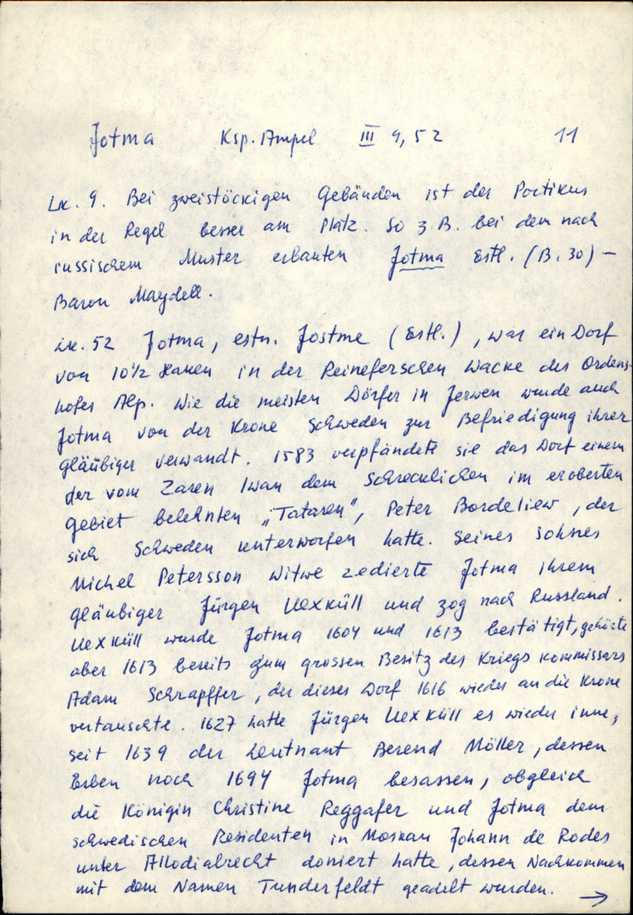 Jotma Ksp. Ampel III 9,52 11
Lk. 9. Bei zweistöckigen Gebäuden ist der Portikus
in der Regel besser am Platz. So z.B. bei dem nach
russischem Muster erbauten Jotma Estl. (B. 30) –
Baron Maydell.
Lk. 52 Jotma, estn. Jostme (Estl.), war ein Dorf
von 10½ Haken in der Reineferschen Wacke des Ordens-
hofes Alp. Wie die meisten Dörfer in Jerwen wurde auch
Jotma von der Krone Schweden zur Befriedigung ihrer
Gläubiger verwandt. 1583 verpfändete sie das Dorf einem
der vom Zaren Iwan dem Schrecklichen im eroberten
Gebiet belehnten „Tataren", Peter Bordeliew, der
sich Schweden unterworfen hatte. Seines Sohnes
Michel Petersson Witwe zedierte Jotma ihrem
Gläubiger Jürgen Uexküll und zog nach Russland.
Uexküll wurde Jotma 1604 und 1613 bestätigt, gehörte
aber 1613 bereits zum grossen Besitz des Kriegskommissars
Adam Schrapffer, der dieses Dorf 1616 wieder an die Krone
vertauschte. 1627 hatte Jürgen Uexküll es wieder inne,
seit 1639 der Leutnant Berend Möller, dessen
Erben noch 1694 Jotma besassen, obgleich
die Königin Christine Reggafer und Jotma dem
schwedischen Residenten in Moskau Johann de Rodes
unter Allodialrecht doniert hatte, dessen Nachkommen
mit dem Namen Tunderfeldt geadelt wurden. →